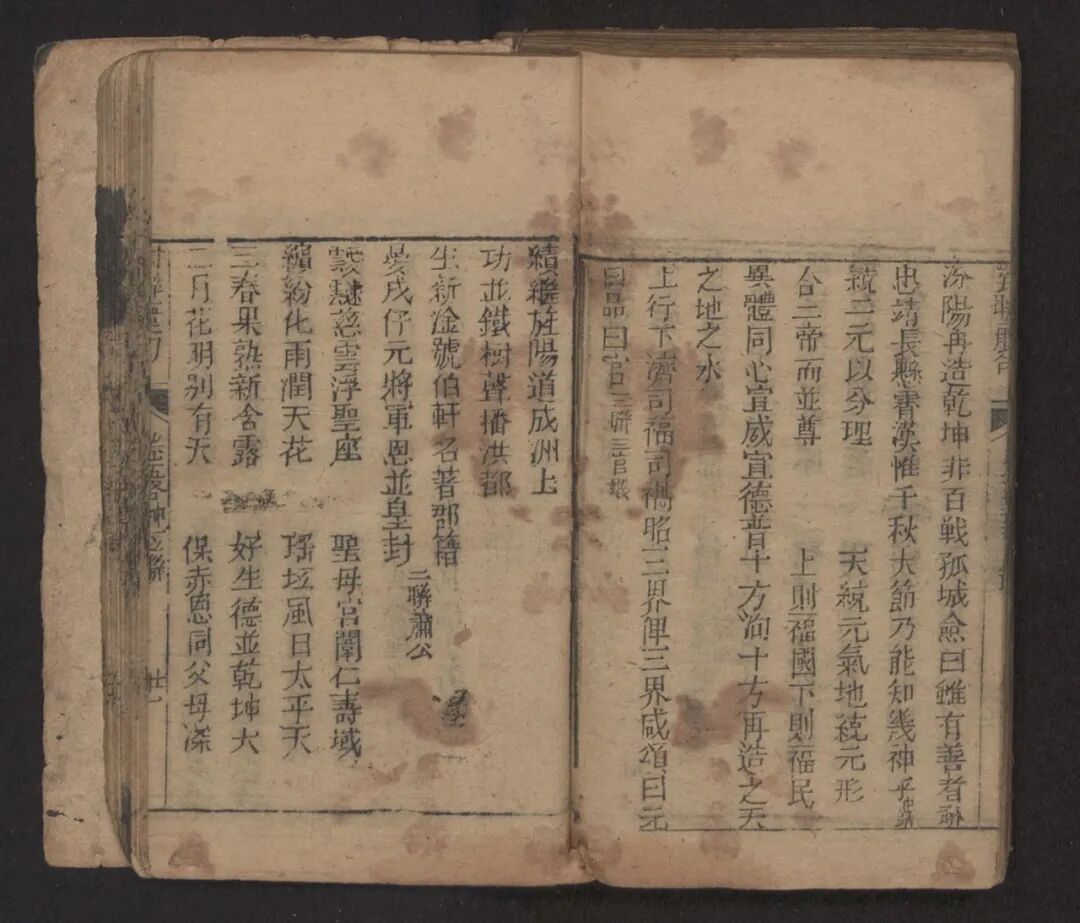 汾陽再造乾坤非百戰孤城僉曰雖有善者聯
忠靖長懸霄漢惟千秋大節乃能知幾神乎
統三元以分理　天統元氣地統元形
合三帝而並尊　上則福國下則福民
異體同心宜威宜德普十方洵十方再造之天
之地之水
上行下濟司福司禍昭三界俾三界咸頌曰元
曰品曰官三聯三官
績纘旌陽道成洲上
功並鐵樹聲播洪都
生新淦號伯軒名著郡籍
晏戌仔元將軍恩並皇封二聯蕭公
靉靆慈雲浮聖座　聖母宮闈仁壽域
繽紛化雨潤天花　瑤坛風日太平天
三春果熟新含露　好生德並乾坤大
二月花明別有天　保赤恩同父母深
神
廿